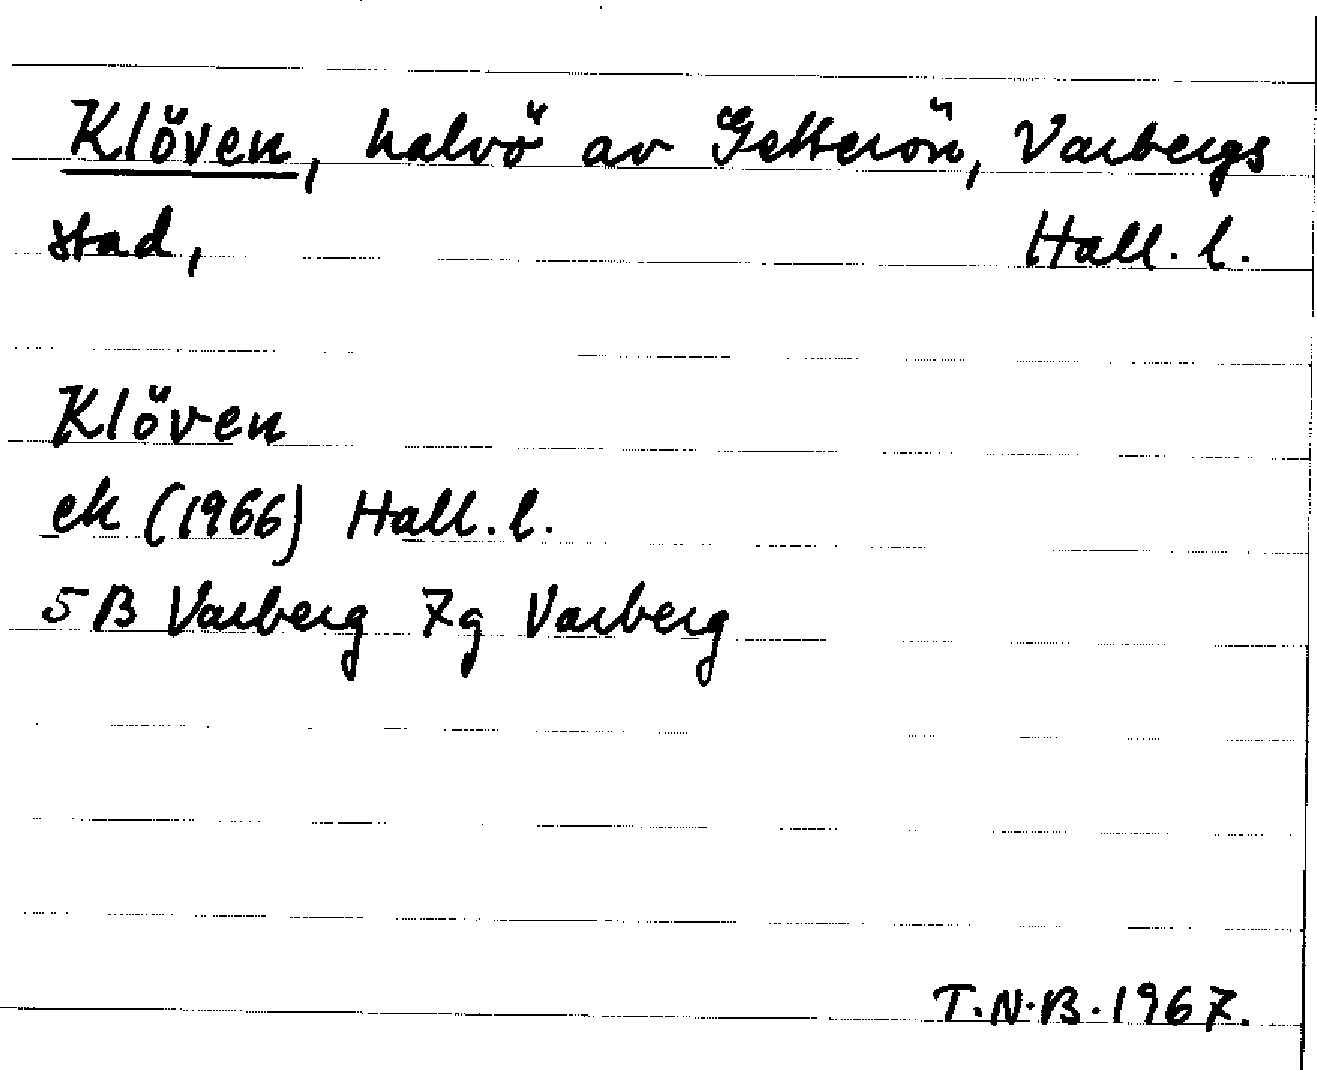 Klöven, halvö av Getterön, Varbergs
stad, Hall. l.
Klöven
ek (1966) Hall. l.
5B Varberg 7g Varberg
T.N.B. 1967.